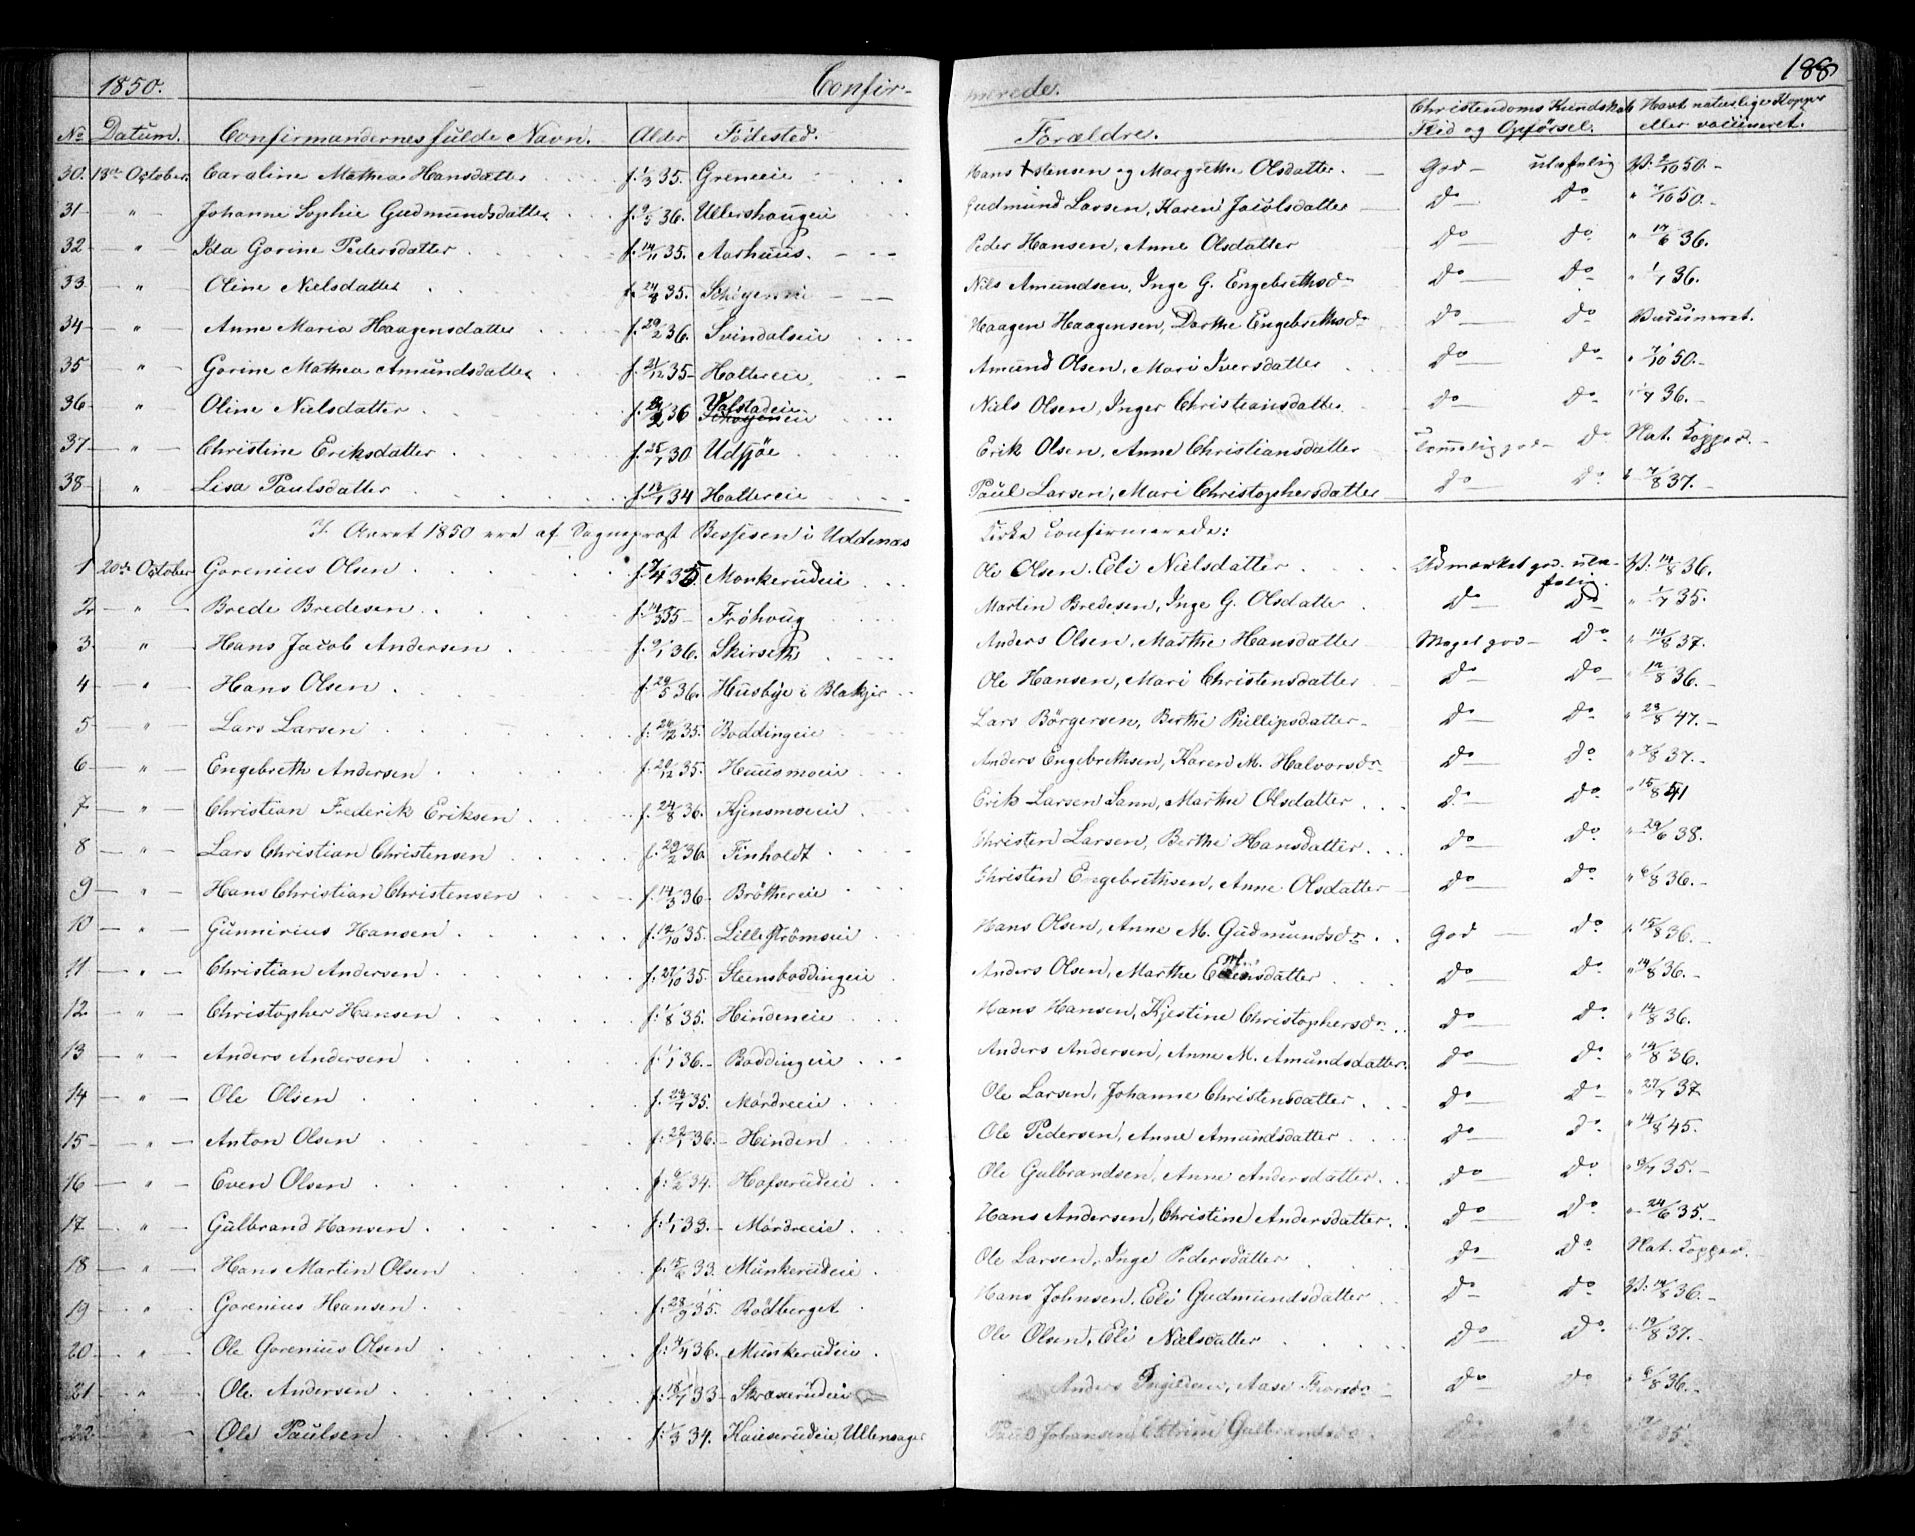 1850. Confir- merede. 188
No Datum. Confirmandernes fulde Navn. Alder Födested. Forældre. Christendoms Kundskab Flid og Opførsel. Havt naturlige Kopper eller vaccineret.
30. 13de October. Caroline Mathea Hansdatter f. 1/3 35. Greneeie Hans Estensen og Margrethe Olsdatter. God - ulastelig V: 2/10 50.-
31 - " - Johanne Sophie Gudmundsdatter f. 9/5 36. Ullershougeie Gudmund Larsen, Karen Jacobsdatter Do Do " 7/10 50.-
32 - " Ida Gorine Pedersdatter f. 14/11 35. Aarhuus. Peder Hansen, Anne Olsdatter Do Do " 17/6 36.
33 " Oline Nielsdatter f. 24/8 35. Nils Amundsen, Inge G. Engebrethsdr Do Do " 1/7 36.
34 " Anne Maria Haagensdatter f. 29/2 36. Svindalseie Haagen Haagensen, Dorthe Engebrethsdr Do Do Vaccineret.
35 " Gorine Mathea Amundsdatter f. 21/12 35 - Hattereie, Amund Olsen, Mari Iversdatter Do Do " 7/10 50.-
36 " Oline Nielsdatter 36 Valstadeie Niels Olsen, Inger Christiansdatter Do Do 36.-
37 - " Christine Eriksdatter f. 25/7 30 Udsjöe Erik Olsen, Anne Christiansdatter temmelig god - Do Nat. Kopper.-
38 - " Lisa Paulsdatter f. 13/1 34 Hattereie Paul Larsen, Mari Christophersdatter Do Do " 7/8 37.-
I Aaret 1850 ere af Sognepræst Bessesen i Uddenæs Kirke Confirmerede:
1 20de October Gorenius Olsen f. 7/4 35 Monkerudeie Ole Olsen. Eli Nielsdatter Udmærket god. ulastelig. V: 14/8 36.
2 - " - Brede Bredesen f. 14/3 35 - Fröhoug Martin Bredesen, Inge G. Olsdatter Do Do " 1/7 35.
3. " Hans Jacob Andersen f. 9/1 36. Skirseth Anders Olsen, Marthe Hansdatter Meget god - Do " 14/8 37.
4 - " - Hans Olsen f. 29/5 36. Husbye i Blakjer Ole Hansen, Mari Christensdatter Do Do " 12/8 36.-
5 - " - Lars Larsen f. 26/12 35. Boddingeie Lars Börgersen, Berthe Phillipsdatter- Do Do " 23/8 47.-
6 - " - Engebreth Andersen f. 20/12 35. Huusmoeie Anders Engebrethsen, Karen M. Halvorsdr Do Do " 7/8 37.-
7 - " - Christian Frederik Eriksen f. 24/8 36. Kjensmoeie Erik Larsen Sann, Marthe Olsdatter Do Do " 15/8 41
8 - " - Lars Christian Christensen f. 29/2 36. Finholdt Christen Larsen, Berthe Hansdatter Do Do " 29/6 38.
9 - " - Hans Christian Christensen f. 14/3 36. Bröttereie Christen Engebrethsen, Anne Olsdatter Do Do " 6/8 36.-
10 - " - Gunnirius Hansen f. 12/10 35. Lilleströmseie Hans Olsen, Anne M. Gudmundsdr God Do " 15/8 36.
11 - " - Christian Andersen f. 27/10 35. Steensboddingeie Anders Olsen, Marthe Do Do " 14/8 36.-
12. - " - Christopher Hansen f: 1/8 35. Hindeneie Hans Hansen, Kjestine Christophersdr Do Do " 14/8 36.
13 - " - Anders Andersen f. 1/1 36.- Boddingeie Anders Andersen, Anne M. Amundsdatter. Do Do " 14/8 36.
14 - " - Ole Olsen f. 23/7 35. Mördreeie Ole Larsen, Johanne Christensdatter Do Do " 27/7 37
15 - " - Anton Olsen f: 22/1 36.- Hinden Ole Pedersen, Anne Amundsdatter Do Do " 14/8 45.
16 - " - Even Olsen f: 6/2 34. Hofserudeie Ole Gulbrandsen, Anne Andersdatter Do Do 35.-
17 - " - Gulbrand Hansen f: 1/1 33.- Mördreeie Hans Andersen, Christine Andersdatter. Do Do " 24/6 35.-
18 - " - Hans Martin Olsen f: 15/2 33. Munkerudeie Ole Larsen, Inge Pedersdatter Do Do Nat. Kopper.
19 " Gorenius Hansen f: 28/9 35. Rödberget Hans Johnsen. Eli Gudmundsdatter Do Do V: 14/8 36.-
20 - " Ole Gorenius Olsen f: 4/4 36. Munkerudeie Ole Olsen, Eli Nielsdatter Do Do " 19/8 37.-
21 " Ole Andersen f: 18/7 33 - Anders Aase Do Do " 6/8 36.-
22 " Ole Paulsen f: 1/3 34. Kauserudeie, Ullensager Paul Johansen Gulbrandsdr Do